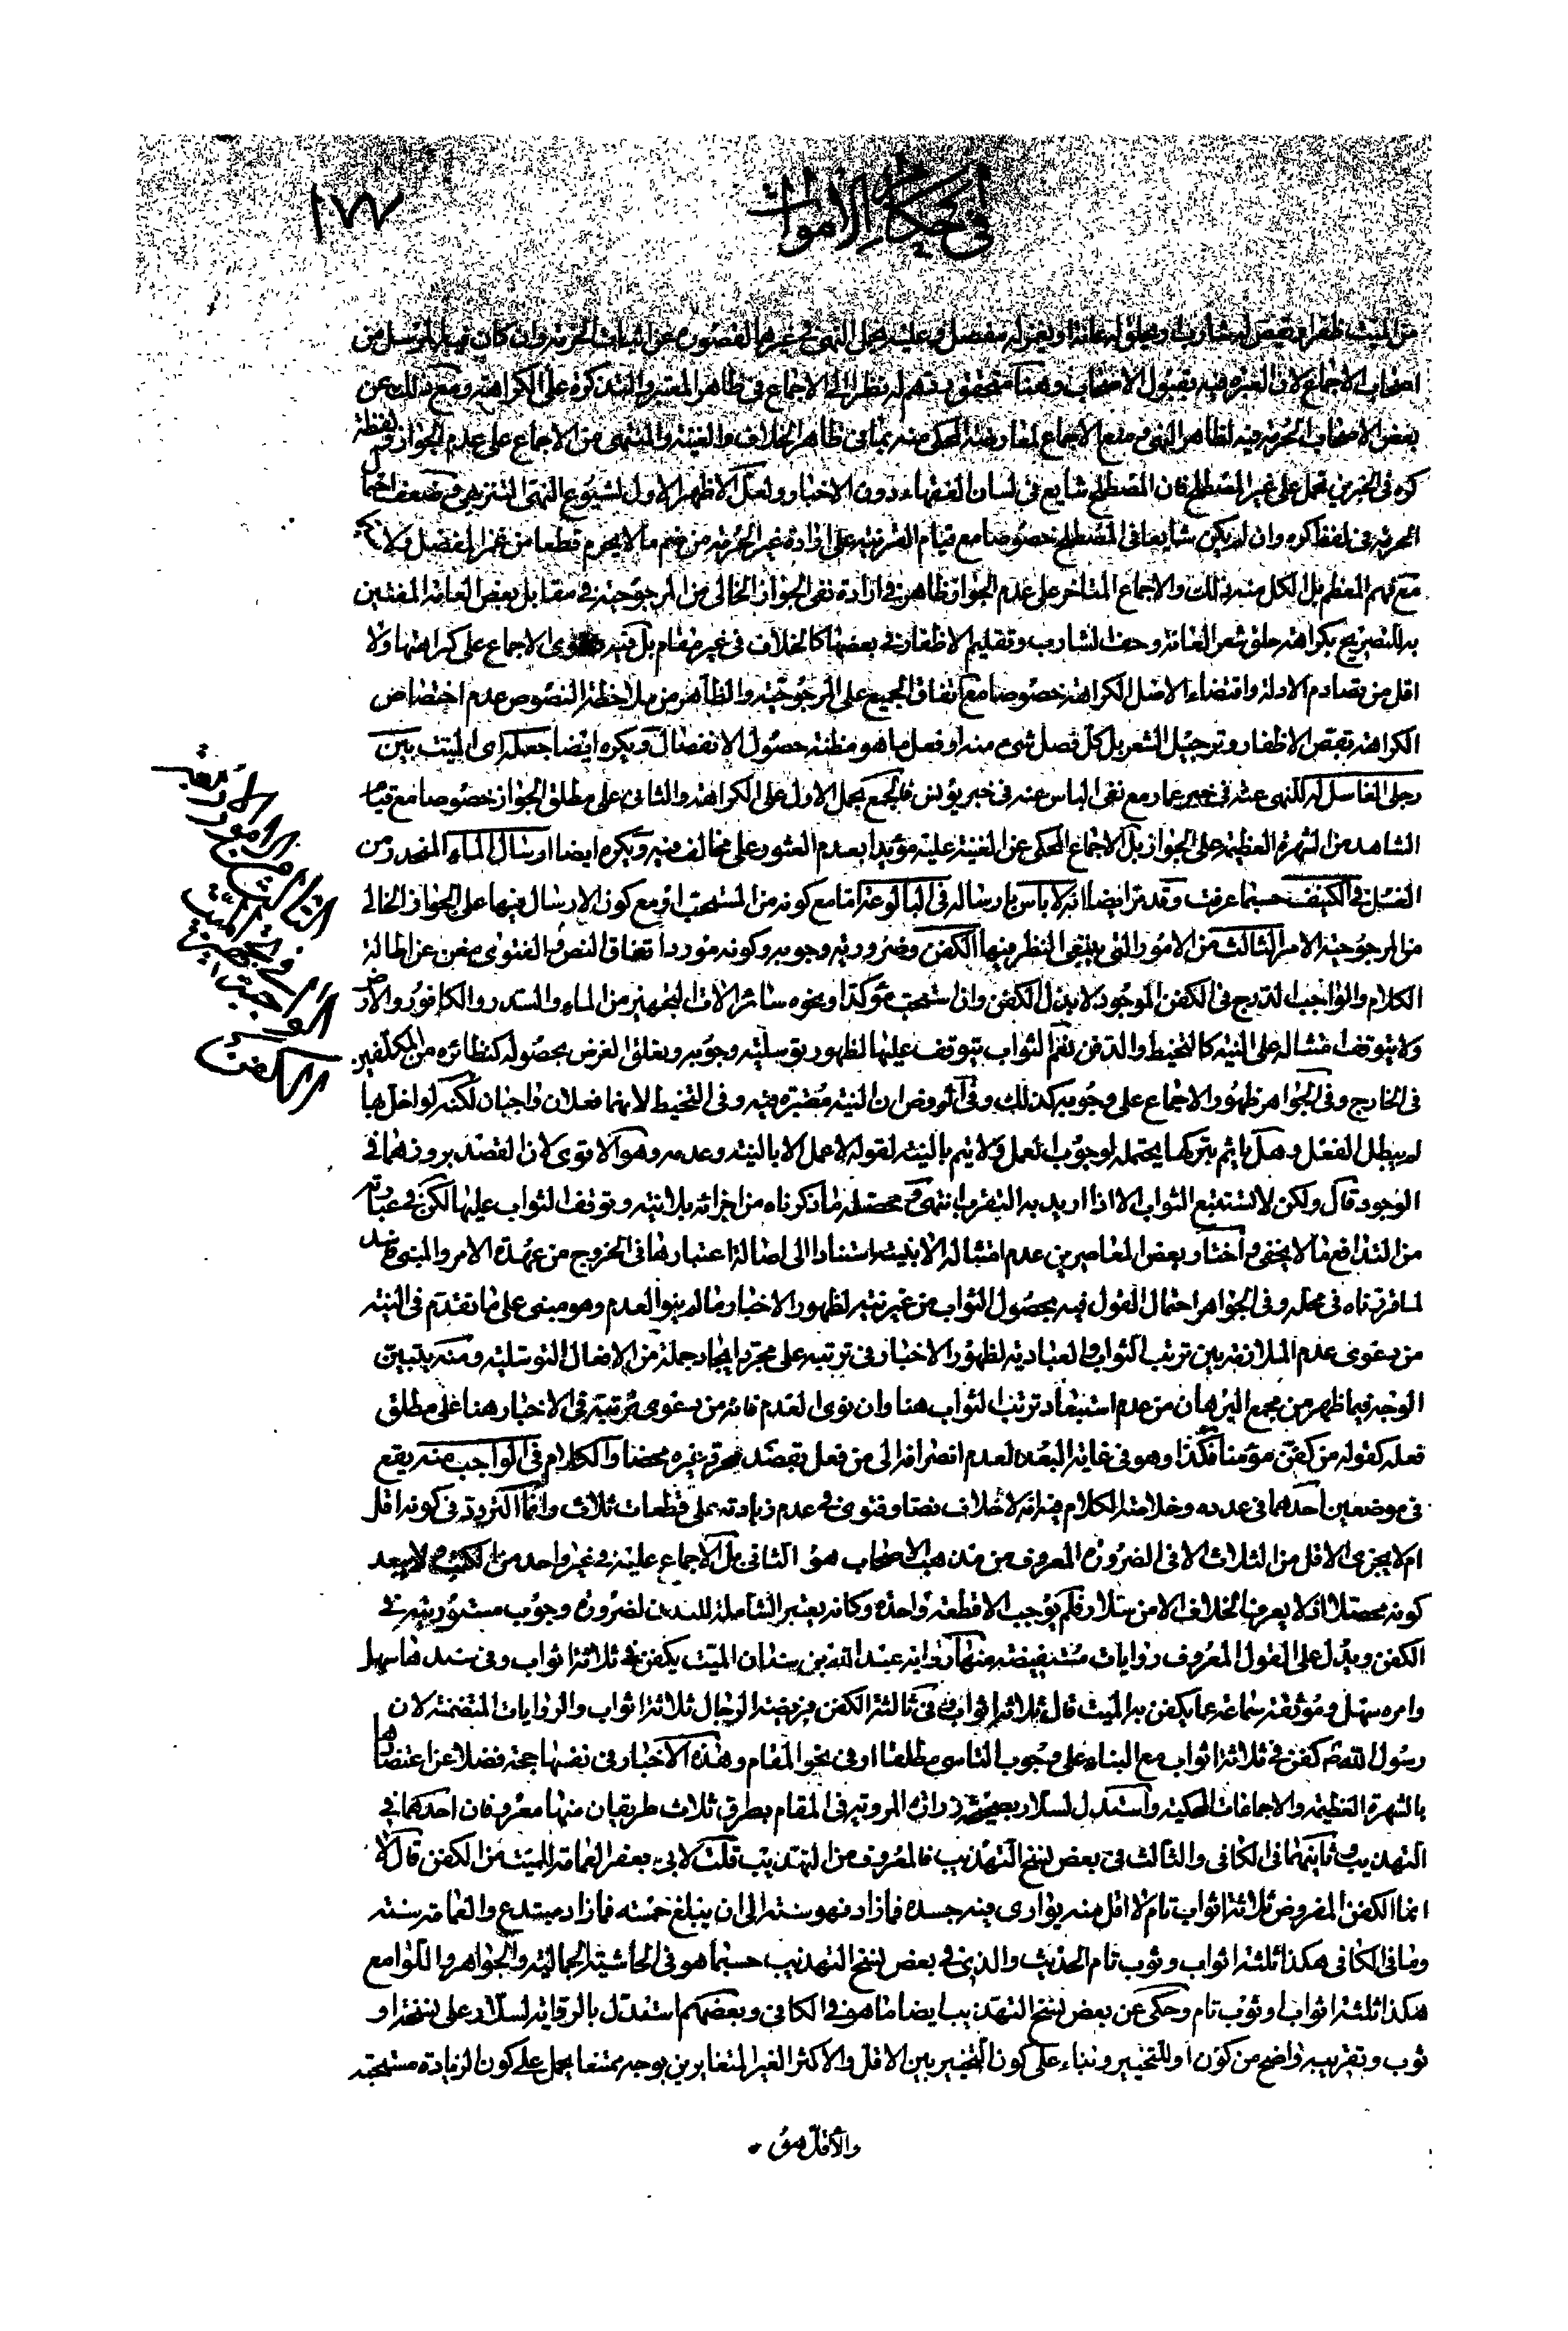 في احكام الاموات
١٧٧
من الميت ظفرا و يقص له شاربا او يحلق له عانة او يغمز له مفصل و عليه يحمل النهي في غيرها لقصوره عن اثبات الحرمة وان كان فيها المرسل من
اصحاب الاجماع لان العبرة فيه بقبول الاصحاب وهنا متحقق نظرا الى الاجماع في ظاهر المعتبر والتذكرة على الكراهة ومع ذلك عن
بعض الاصحاب الحرمة فيه لظاهر النهي ومنع الاجماع لمعارضته المحكي منه بما في ظاهر الخلاف والغنية والمنتهى من الاجماع على عدم الجواز ولفظة
كره في الخبرين تحمل على غير المصطلح فان المصطلح شايع في لسان الفقهاء دون الاخبار ولعل الاظهر الاول لشيوع النهي التنزيهي وضعف احتمال
الحرمة في لفظ كره وان لم يكن شايعا في المصطلح خصوصا مع قيام القرينة على ارادة غير الحرمة من ضم ما لا يحرم قطعا من غمز المفصل
مع فهم المعظم بل الكل منه ذلك والاجماع المتأخر على عدم الجواز ظاهر في ارادة نفي الجواز الخالي من المرجوحية في مقابل بعض العامة المفتين
به للتصريح بكراهة حلق شعر العانة وحف الشارب وتقليم الاظفار في بعضها كالخلاف في غير مقام بل فيه دعوى الاجماع على كراهتها ولا
اقل من تصادم الادلة واقتضاء الاصل الكراهة خصوصا مع اتفاق الجميع على المرجوحية والظاهر من ملاحظة النصوص عدم اختصاص
الكراهة بقص الاظفار وترجيل الشعر بل كل فصل شيء منه او فعل ما هو مظنة حصول الانفصال ويكره ايضا جعله اي الميت بين
رجلي الغاسل له للنهي عنه في خبر عمار مع نفي الباس عنه في خبر يونس فالجمع بحمل الاول على الكراهة والثاني على مطلق الجواز خصوصا مع قيام
الشاهد من الشهرة العظيمة على الجواز بل الاجماع المحكي عن الغنية عليه مؤيدا بعدم العثور على مخالف فيه ويكره ايضا ارسال الماء المنحدر من
الغسل في الكنيف حسبما عرفت وقد مر ايضا انه لا باس بارساله في البالوعة اما مع كونه من المستحب او مع كون الارسال فيها على الجواز الخالي
من المرجوحية الامر الثالث من الامور التي ينبغي النظر فيها الكفن وضرورية وجوبه وكونه مورد اتفاق النص والفتوى مغن عن اطالة
الكلام والواجب الدرج في الكفن الموجود لا بذل الكفن وان استحب مؤكدا ونحوه سائر الات التجهيز من الماء والسدر والكافور والارض
ولا يتوقف امتثاله على النية كالتحنيط والدفن نعم الثواب يتوقف عليها لظهور توسلية وجوبه وتعلق الغرض بحصوله كنظائره من المكلفين
في الخارج وفي الجواهر ظهور الاجماع على وجوبه كذلك وفي الروض ان النية معتبرة فيه وفي التحنيط لانهما فعلان واجبان لكنه لو اخل بها
لم يبطل الفعل وهل ياثم بتركها يحتمله لوجوب العمل ولا يتم بالنية لقوله لا عمل الا بالنية وعدمه وهو الاقوى لان القصد بروزهما في
الوجود قال ولكن لا تستتبع الثواب الا اذا اريد به التقرب انتهى و محصله ما ذكرناه من اجزائه بلا نية وتوقف الثواب عليها لكن في عبارته
من التدافع ما لا يخفى واختار بعض المعاصرين عدم امتثاله الا بنية استنادا الى اصالة اعتبارها في الخروج من عهدة الامر والمبنى فاسد
لما قررناه في محله وفي الجواهر احتمال القول فيه بحصول الثواب من غير نية لظهور الاخبار ما لم ينو العدم وهو مبني على ما تقدم في النية
من دعوى عدم الملازمة بين ترتب الثواب والعبادية لظهور الاخبار في ترتبه على مجرد ايجاد جملة من الافعال التوسلية ومنه يتبين
الوجه فيما ظهر من مجمع البرهان من عدم استبعاد ترتب الثواب هنا وان نوى العدم فانه من دعوى ترتبه في الاخبار هنا على مطلق
فعله كقوله من كفن مؤمنا فكذا وهو في غاية البعد لعدم انصرافه الى من فعل بقصد غيره محضا والكلام في الواجب منه يقع
في موضعين احدهما في عدده وخلاصة الكلام فيه انه لا خلاف نصا وفتوى في عدم زيادته على قطعات ثلاث وانما التردد في كونه اقل
ام لا يجزى الاقل من الثلاث الا في الضرورة المعروف من مذهب الاصحاب هو الثاني بل الاجماع عليه في غير واحد من الكتب ولا يبعد
كونه محصلا اذ لا يعرف الخلاف الا من سلار فلم يوجب الا قطعة واحدة وكانه يعتبر الشاملة للبدن لضرورة وجوب مستوريته في
الكفن ويدل على القول المعروف روايات مستفيضة منها رواية عبد الله بن سنان الميت يكفن في ثلاثة اثواب وفي سندها سهل
وامره سهل وموثقة سماعة عما يكفن به الميت قال ثلاثة اثواب وفي ثالثة الكفن فريضة للرجال ثلاثة اثواب والروايات المتضمنة لان
رسول الله ص كفن في ثلاثة اثواب مع البناء على وجوب التاسي مطلقا او في نحو المقام وهذه الاخبار في نفسها حجة فضلا عن اعتضادها
بالشهرة العظيمة والاجماعات المحكية واستدل لسلار بصحيحة زرارة المروية في المقام بطرق ثلاث طريقان منها معروفان احدهما في
التهذيب وثانيهما في الكافي والثالث في بعض نسخ التهذيب فالمعروف من التهذيب قلت لابي جعفر العمامة للميت من الكفن قال لا
انما الكفن المفروض ثلاثة اثواب تام لا اقل منه يوارى فيه جسده فما زاد فهو سنة الى ان يبلغ خمسه فما زاد مبتدع والعمامة سنة
وما في الكافي هكذا ثلثة اثواب وثوب تام الحديث والذي في بعض نسخ التهذيب حسبما هو في الحاشية الجمالية والجواهر واللوامع
هكذا ثلثة اثواب او ثوب تام وحكي عن بعض نسخ التهذيب ايضا ما هو في الكافي وبعضهم استدل بالرواية لسلار على نسخة او
ثوب وتقريبه واضح من كون او للتخيير وبناء على كون التخيير بين الاقل والاكثر الغير المتغايرين بوجه ممتنعا يحمل على كون الزيادة مستحبة
والاقل هو
الامر
الثالث من
الامور
الواجبة
الكفن